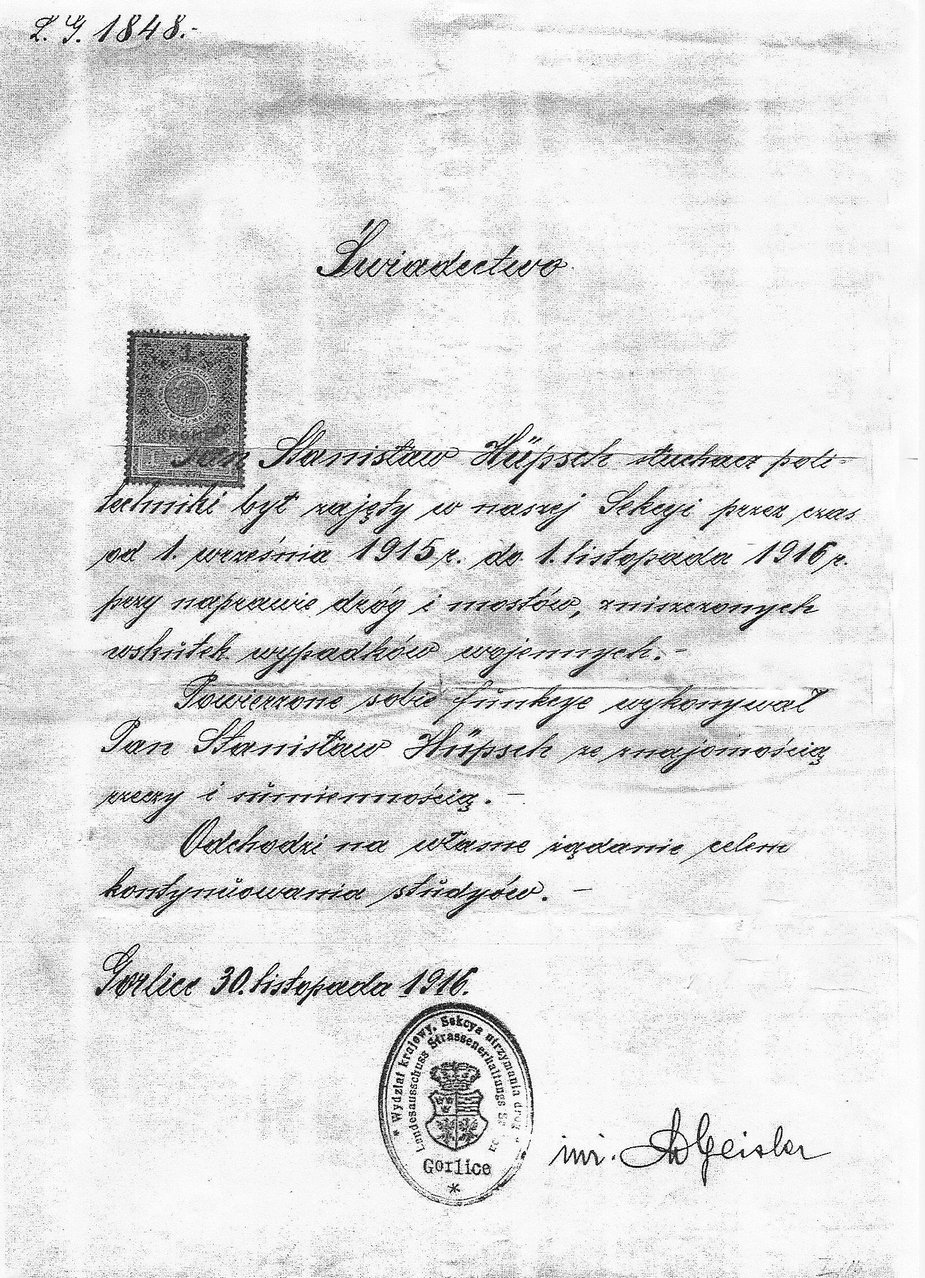 L. G. 1848.-
Świadectwo
1
KRONE
1
Pan Stanisław Hüpsch słuchacz poli-
techniki był zajęty w naszej Sekcyi przez czas
od 1. września 1915 r. do 1. listopada 1916 r.
przy naprawie dróg i mostów, zniszczonych
wskutek wypadków wojennych.-
Powierzone sobie funkcye wykonywał
Pan Stanisław Hüpsch ze znajomością
rzeczy i sumiennością.-
Odchodzi na własne żądanie celem
kontynuowania studyów.-
Gorlice 30. listopada 1916.
* Wydział krajowy, Sekcya utrzymania dróg *
Landesausschuss Strassenerhaltungs
Gorlice
*
inż. Geisler